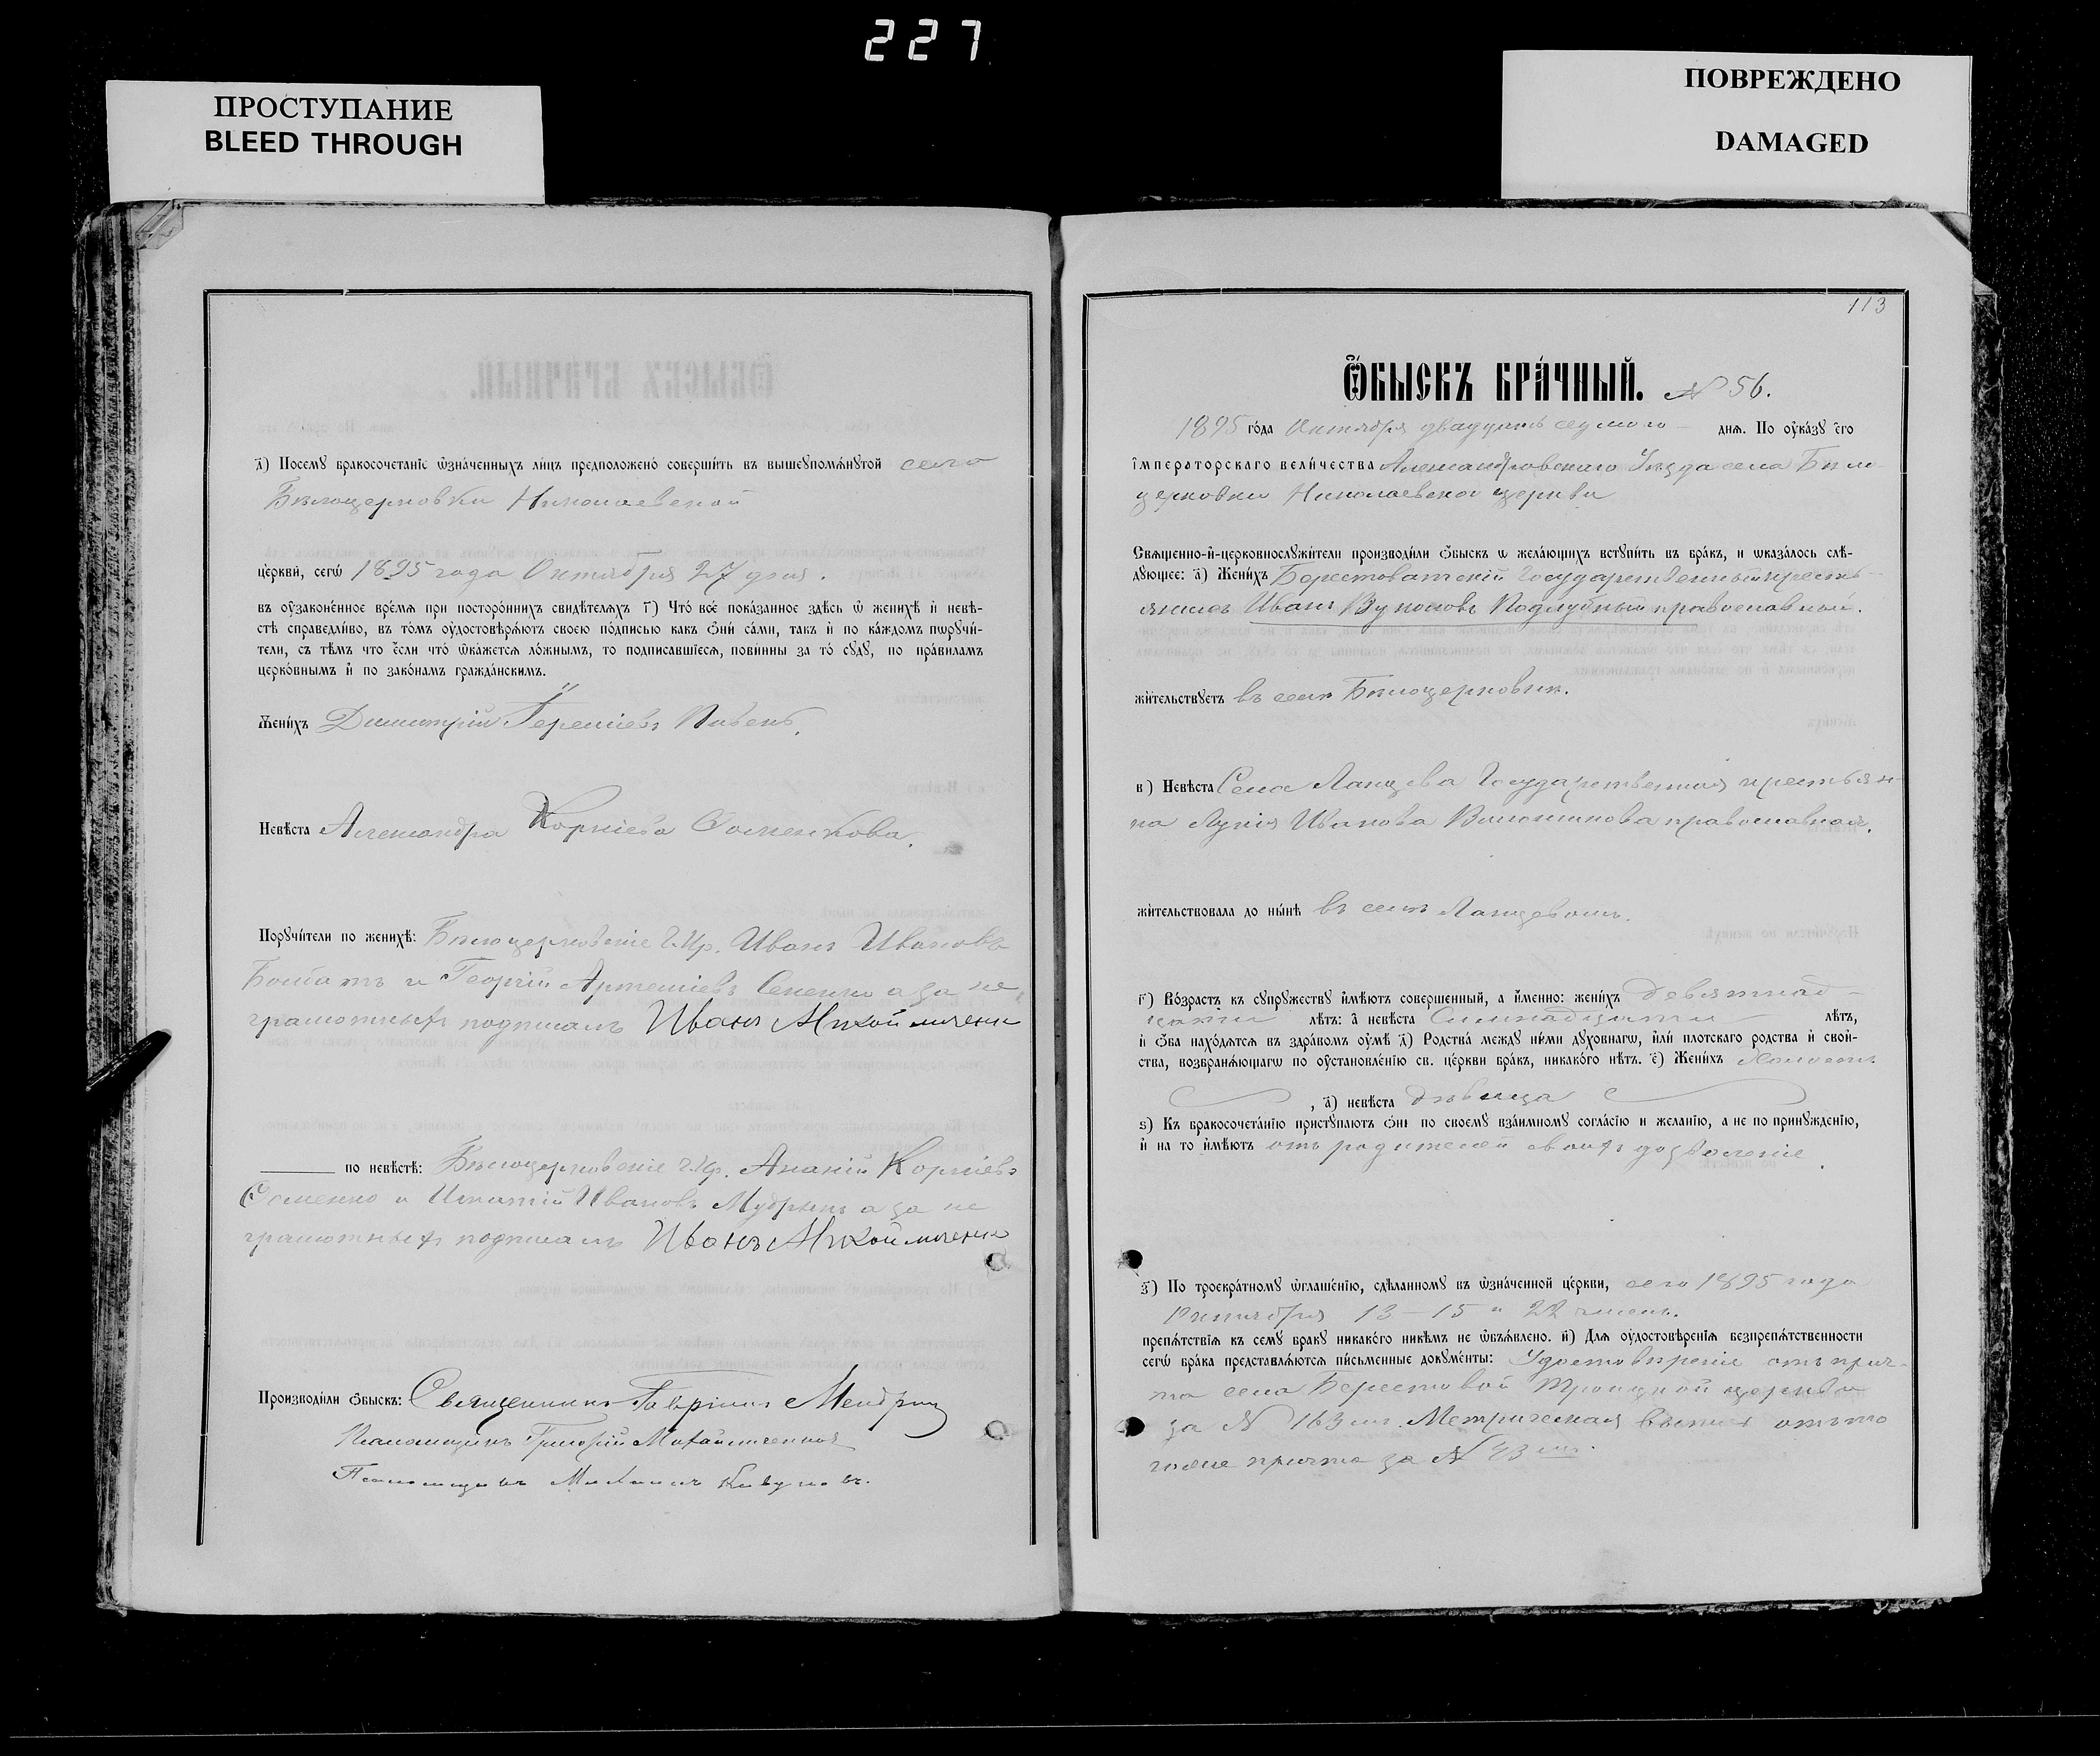 227
ПРОСТУПАНИЕ
BLEED THROUGH
ПОВРЕЖДЕНО
DAMAGED
д҃) Посемꙋ бракосочетаніе ѡзна́ченныхъ ли́цъ предположено́ соверши́ть въ вышеꙋпомѧ́нꙋтой села
Бѣлоцерковки Николаевской
це́ркви, сегѡ̀ 1895 года Октября 27 дня.
въ оу҆зако́не́нное вре́мѧ при посторо́ннихъ свидѣ́телѧхъ г҃) Что̀ всѐ пока́занное здѣ́сь ѡ женихѣ̀ и҆ невѣ́-
стѣ справедли́во, въ то́мъ оу҆достовѣрѧ́ютъ своею по́дписью какъ ѻ҆нѝ са́ми, такъ и҆ по ка́ждомъ пѡрꙋчи́-
тели, съ тѣ́мъ что є҆́сли что̀ ѡ҆ка́жетсѧ ло́жнымъ, то подписавшіесѧ, пови́нны за то̀ сꙋдꙋ̀, по пра́виламъ
церко́внымъ и҆ по зако́намъ гражда́нскимъ.
Жени́хъ Димитрій Геремiевъ Пивень.
Невѣ́ста Александра Корніева Соменкова.
Порꙋчи́тели по женихѣ̀: Бѣлоцерковскіе Г. Кр. Иванъ Ивановъ
и Георгій Артеміевъ а за не
грамотныхъ подписалъ Иванъ
по невѣ́стѣ: Бѣлоцерковскіе Г. Кр. Ананій Корніевъ
Соменко и Игнатій Ивановъ Мудрыкъ а за не
грамотныхъ подписалъ Иванъ
Производи́ли ѻ҆́быскъ: Священникъ Гавріилъ
Псаломщикъ Григорій
Псаломщикъ Михаилъ Кивуновъ.
113
Ѻ҆́быскъ бра́чный. № 56.
1895 го́да Октября двадцать седьмого днѧ. По оу҆ка́зꙋ є҆гѡ̀
і҆мпера́торскаго вели́чества Александровскаго Уѣзда села Бѣло
церковки Николаевской церкви
Свѧще́нно-и҆-церковнослꙋжи́тели производи́ли ѻ҆́быскъ ѡ жела́ющихъ встꙋпи́ть въ бра́къ, и ѡ҆каза́лось слѣ́-
дꙋющее: а҃) Жени́хъ Берестоватскій Государственный кресть-
янинъ Иванъ Вуколовъ Поддубный православный.
жи́тельствꙋетъ въ селѣ Бѣлоцерковкѣ.
в҃) Невѣ́ста Села Ланцева Государственная крестьян-
ка Лукія Иванова православная.
жи́тельствовала до ны́нѣ въ селѣ Ланцевомъ.
г҃) Во́зрастъ къ сꙋпрꙋжествꙋ и҆мѣ́ютъ соверше́нный, а и҆́менно: жени́хъ девятнад-
цати лѣ́тъ: а҆ невѣ́ста Семнадцати лѣ́тъ,
и҆ ѻ҆́ба нахо́дѧтсѧ въ здра́вомъ оу҆мѣ̀ д҃) Родства̀ междꙋ ни́ми дꙋховнагѡ, и҆лѝ плотскаго родства и҆ свой-
ства, возбранѧ́ющагѡ по оу҆становле́нію св. це́ркви бра́къ, никако́го нѣ́тъ. є҃) Жени́хъ Холостъ
, д҃) невѣ́ста дѣвица
ѕ҃) Къ бракосочета́нію пристꙋпа́ютъ ѻ҆нѝ по своемꙋ̀ взаи́мномꙋ согла́сію и жела́нію, а не по принꙋжде́нію,
и҆ на то и҆мѣ́ютъ отъ родителей своихъ дозволеніе.
з҃) По троекра́тномꙋ ѡ҆глаше́нію, сдѣ́ланномꙋ въ ѡ҆зна́ченной це́ркви, сего 1895 года
Октября 13 - 15 и 22 числъ.
препѧ́тствіѧ къ семꙋ бракꙋ никако́го никѣ́мъ не ѡ҆бъѧ́влено. и҃) Длѧ оу҆достовѣ́реніѧ безпрепѧ́тственности
сегѡ̀ бра́ка представлѧ́ютсѧ пи́сьменные докꙋме́нты: Удостовѣреніе отъ прич-
та села Берестовой Троицкой церкви
за № 163мъ. Метрическая выпись отъ то
гоже причта за № 43мъ.